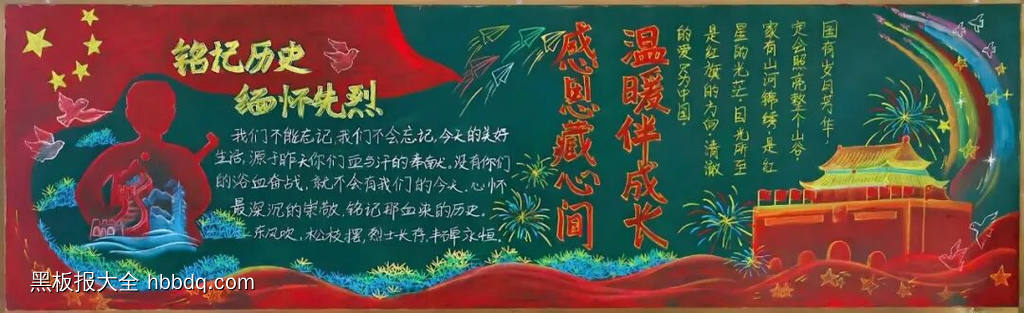 铭记历史
缅怀先烈
我们不能忘记,我们不会忘记,今天的美好
生活,源于昨天你们血与汗的奉献,没有你们
的浴血奋战,就不会有我们的今天,心怀
最深沉的崇敬,铭记那血染的历史。
东风吹,松枝摆,烈士长存,丰碑永恒。
温暖伴成长
感恩藏心间
国有岁月芳华
定会照亮整个山谷
家有山河锦绣·是红
星的光芒·目光所至
是红旗的方向·清澈
的爱只为中国。
黑板报大全 hbbdq.com